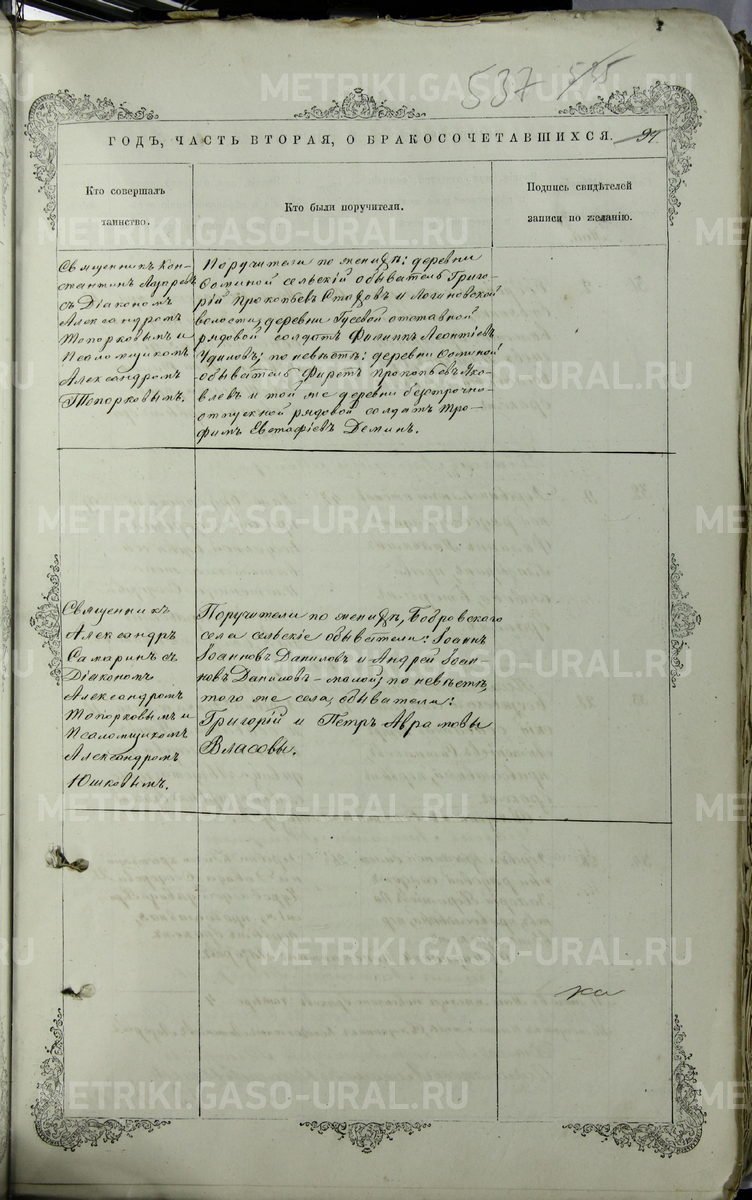 537 535
ГОДЪ, ЧАСТЬ ВТОРАЯ, О БРАКОСОЧЕТАВШИХСЯ. 94.
Кто совершалъ
таинство.
Кто были поручители.
Подпись свидѣтелей
записи по желанію.
Священникъ Кон-
стантинъ
съ Діакономъ
Александромъ
Топорковымъ и
Псаломщикомъ
Александромъ
Топорковымъ.
Поручители по женихѣ: деревни
сельскій обыватель Григо-
рій Прокопьевъ и Логиновской
волости, деревни Гусевой отставной
рядовой солдатъ Филиппъ Леонтіевъ
Удиловъ; по невѣстѣ: деревни
обыватель Прокопьевъ Яко-
влевъ и той же деревни безсрочно-
отпускной рядовой солдатъ Тро-
фимъ Евстафіевъ Деминъ.
Священникъ
Александръ
Самаринъ съ
Діакономъ
Александромъ
Топорковымъ и
Псаломщикомъ
Александромъ
Юшковымъ.
Поручители по женихѣ, Бобровскаго
села сельскіе обыватели: Іоаннъ
Іоанновъ Даниловъ и Андрей Іоан-
новъ Даниловъ-малой; по невѣстѣ,
того же села, обыватели:
Григорій и Петръ Аврамовы
Власовы.
METRIKI.GASO-URAL.RU